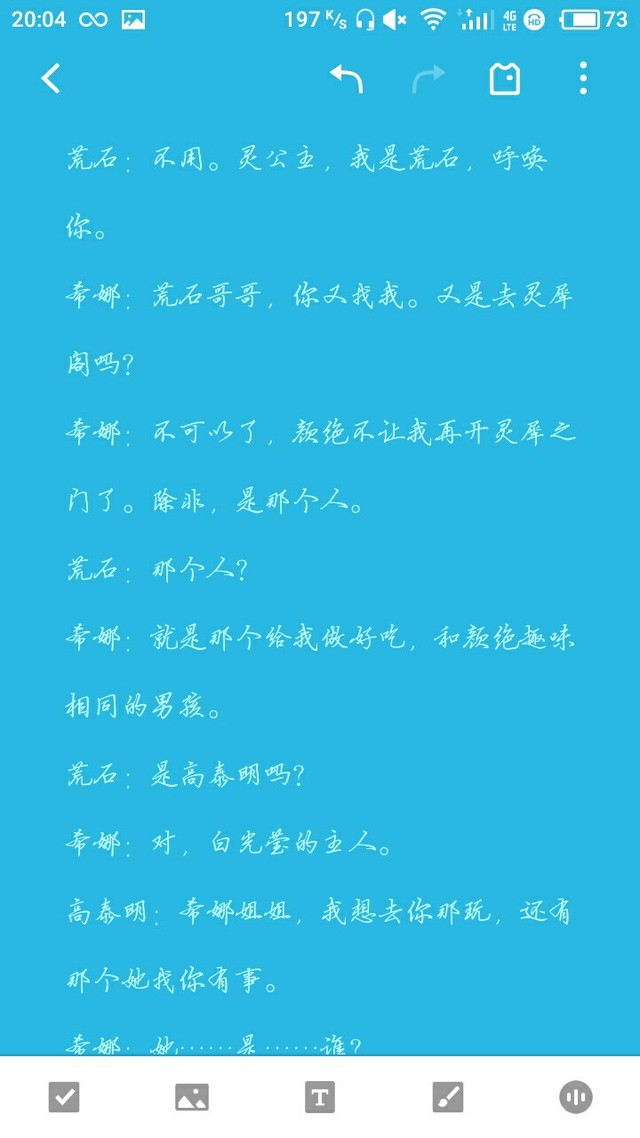 20:04
197 K/s
4G LTE
HD
73
荒石：不用。灵公主，我是荒石，呼唤
你。
希娜：荒石哥哥，你又找我。又是去灵犀
阁吗？
希娜：不可以了，颜绝不让我再开灵犀之
门了。除非，是那个人。
荒石：那个人？
希娜：就是那个给我做好吃，和颜绝趣味
相同的男孩。
荒石：是高泰明吗？
希娜：对，白光莹的主人。
高泰明：希娜姐姐，我想去你那玩，还有
那个她找你有事。
希娜：她……是……谁？
T